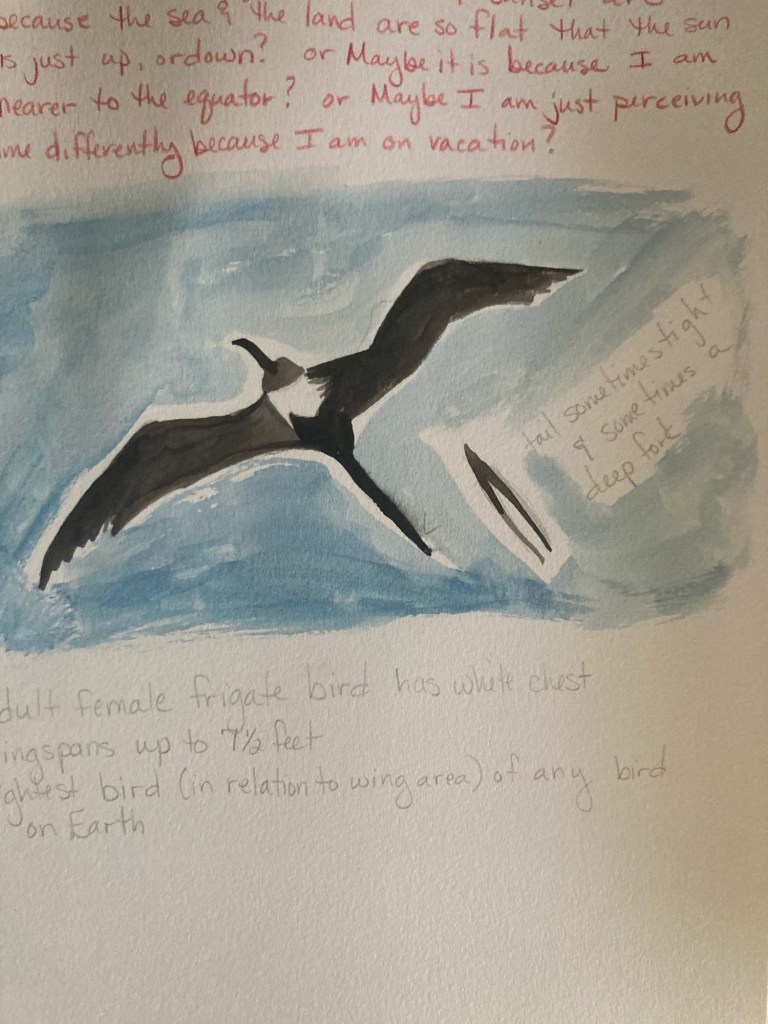 because the sea & the land are so flat that the sun
is just up, or down? or Maybe it is because I am
nearer to the equator? or Maybe I am just perceiving
me differently because I am on vacation?
tail sometimes tight
& sometimes a
deep fork
dult female frigate bird has white chest
ingspans up to 7½ feet
ghtest bird (in relation to wing area) of any bird
on Earth